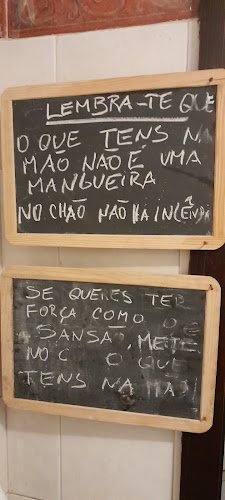 LEMBRA-TE QUE
O QUE TENS NA
MÃO NÃO É UMA
MANGUEIRA
NO CHÃO NÃO HÁ INCÊNDIO
SE QUERES TER
FORÇA COMO O
SANSÃO, METE
NO C O QUE
TENS NA MÃO